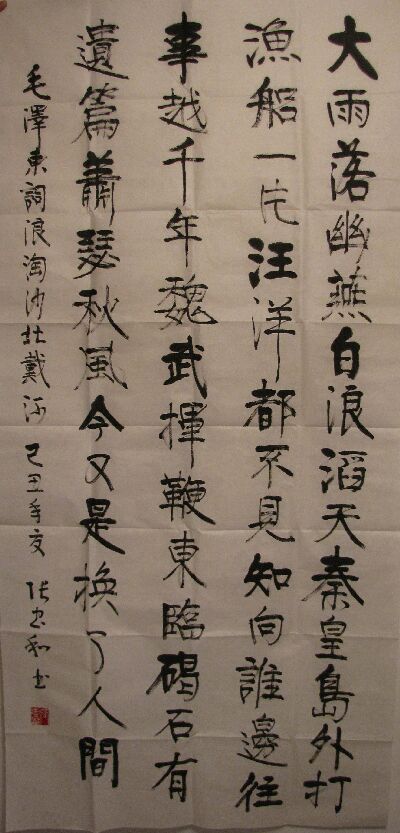 大雨落幽燕白浪滔天秦皇島外打
漁船一片汪洋都不見知向誰邊往
事越千年魏武揮鞭東臨碣石有
遺篇蕭瑟秋風今又是換了人間
毛澤東詞浪淘沙北戴河 己丑年夏 张和书